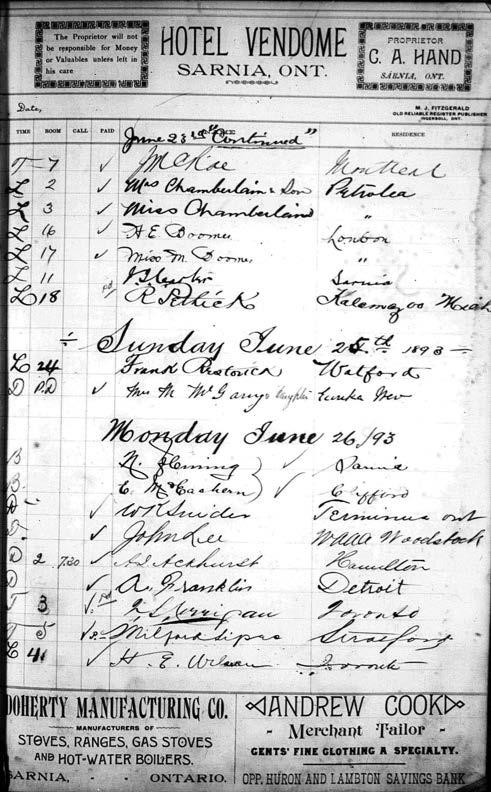 The Proprietor will not
be responsible for Money
or Valuables unless left in
his care
HOTEL VENDOME
SARNIA, ONT.
PROPRIETOR
C. A. HAND
SARNIA, ONT.
Date,
M. J. FITZGERALD
OLD RELIABLE REGISTER PUBLISHER
INGERSOLL, ONT.
TIME ROOM CALL PAID RESIDENCE
June 23rd "Continued"
T 7 ✓ McKae Montreal
L 2 ✓ Mrs Chamberlain & Son Petrolea
L 3 ✓ Miss Chamberlaind "
L 16 ✓ H E Boomer London
L 17 ✓ Miss M. Boomer "
L 11 Sarnia
L 18 pd R. Pethick Kalamazoo Mich
÷ Sunday June 25th 1893 ÷
L 24 Frank Restorick Watford
D P.D ✓ Mrs M McGarvy & daughter Eureka Nev
Monday June 26/93
B N. Fleming ✓ Sarnia
B C McEachern ✓ Clifford
D ✓ W R Snider Terminus ont
D ✓ John Lee Woodstock
D 2 7.30 ✓ A. D. Ackhurst Hamilton
D ✓ A. Franklin Detroit
T 3 ✓ pd Toronto
T 5 ✓ Milford Stratford
L 41 ✓ H. E. Wilson Toronto
DOHERTY MANUFACTURING CO.
MANUFACTURERS OF
STOVES, RANGES, GAS STOVES
AND HOT-WATER BOILERS.
SARNIA, - - ONTARIO.
ANDREW COOK
- Merchant Tailor -
GENTS' FINE CLOTHING A SPECIALTY.
OPP. HURON AND LAMBTON SAVINGS BANK